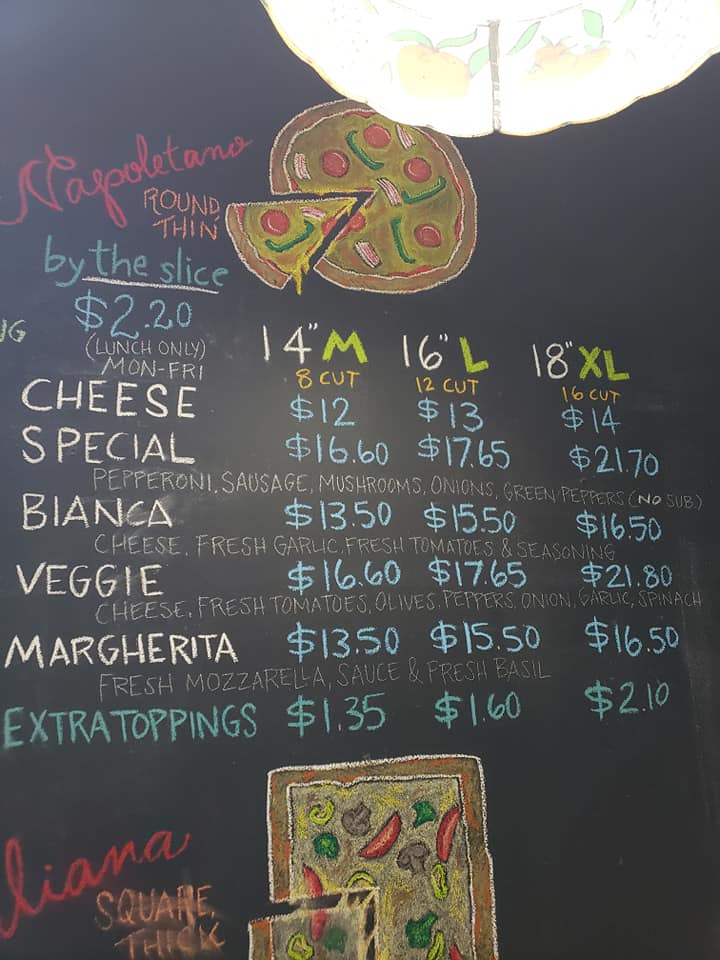 Napoletano
ROUND,
THIN
by the slice
$2.20
(LUNCH ONLY)
MON-FRI
14" M 16" L 18" XL
8 CUT 12 CUT 16 CUT
CHEESE $12 $13 $14
SPECIAL $16.60 $17.65 $21.70
PEPPERONI, SAUSAGE, MUSHROOMS, ONIONS, GREEN PEPPERS (NO SUB.)
BIANCA $13.50 $15.50 $16.50
CHEESE, FRESH GARLIC, FRESH TOMATOES & SEASONING
VEGGIE $16.60 $17.65 $21.80
CHEESE, FRESH TOMATOES, OLIVES, PEPPERS, ONION, GARLIC, SPINACH
MARGHERITA $13.50 $15.50 $16.50
FRESH MOZZARELLA, SAUCE & FRESH BASIL
EXTRA TOPPINGS $1.35 $1.60 $2.10
liana
SQUARE,
THICK